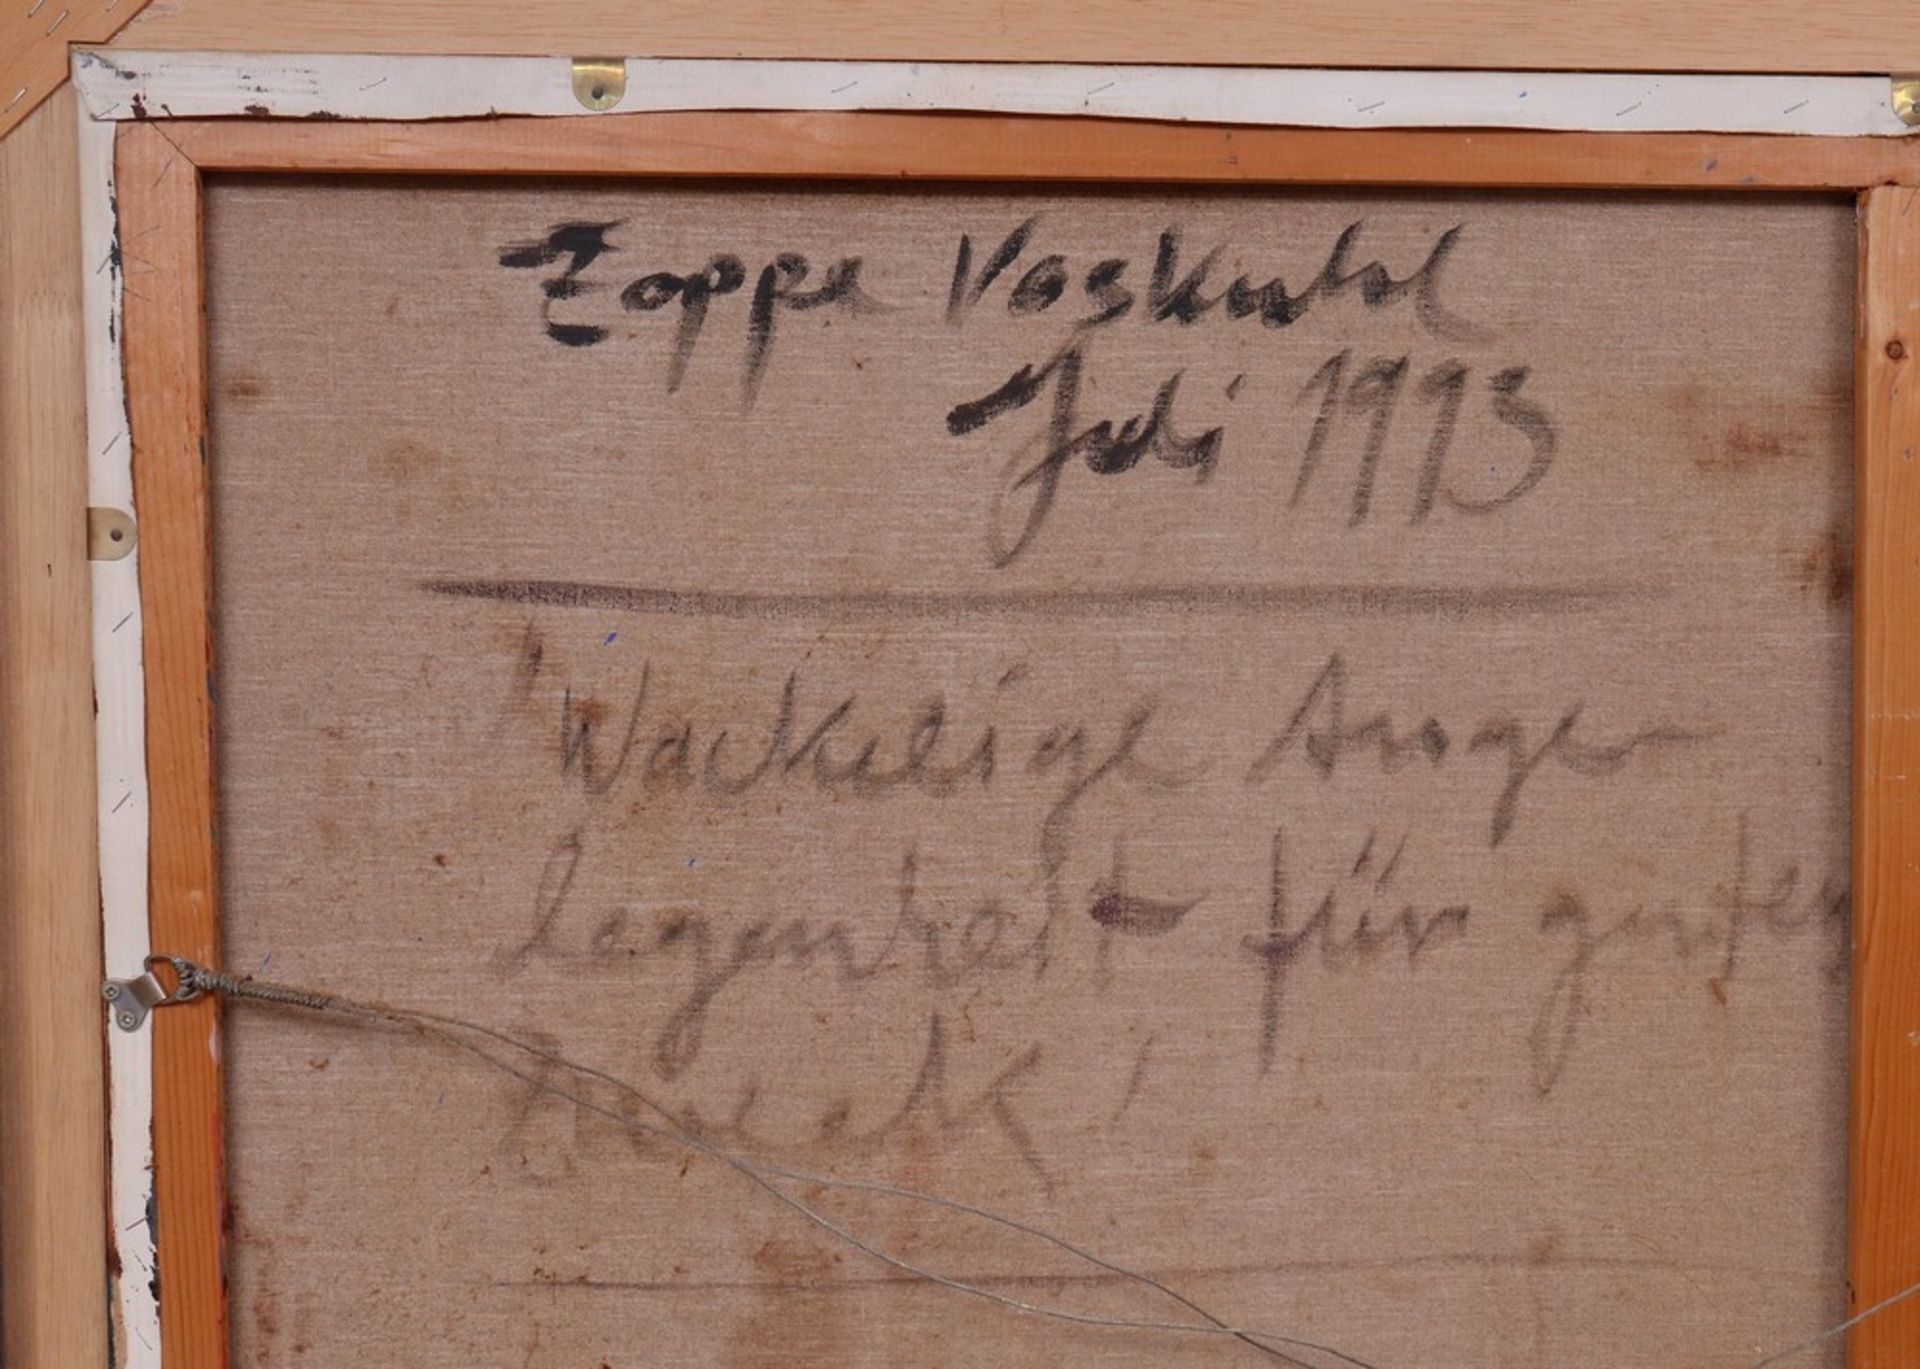 Zoppe Voskuhl
Juli 1993
"Wackelige Ange-
legenheit für guten
Zweck"